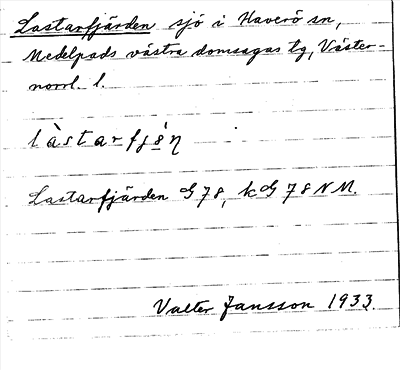 Lastarfjärden sjö i Haverö sn,
Medelpads västra domsagas tg, Väster-
norrl. l.
làstarfjän
Lastarfjärden G 78, kG 78 NM.
Valter Jansson 1933.